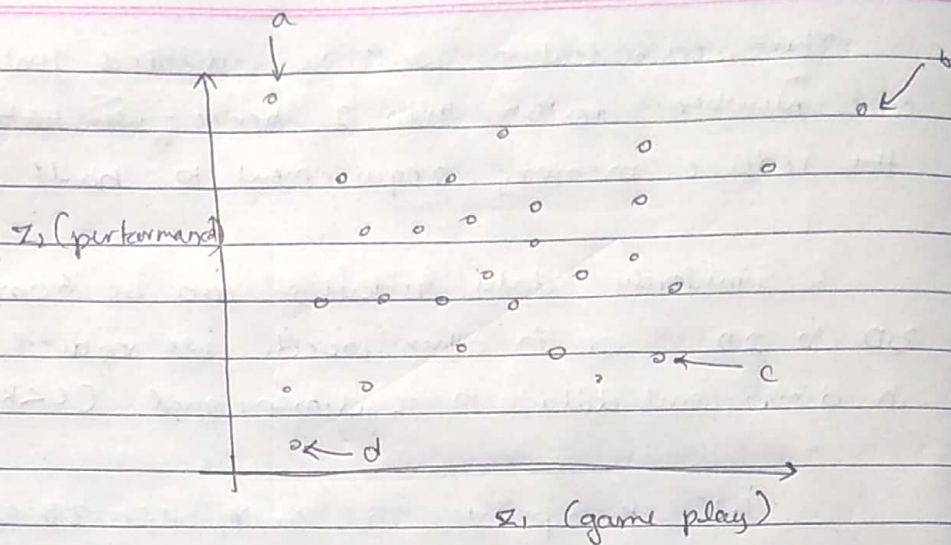 a
b
z₂ (performance)
c
d
z₁ (game play)